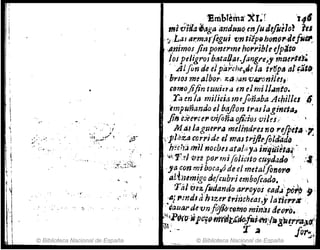 Emblema XI. 146
mi vida vaga anduuo en su desuelo: res
Las armas segui vn tiẽpo honor de su ser
animos sin ponerme horrible espãto
los peligros batallas, sangre, y muertes.
Al son de el parche, de la trõpa al cãto
brios me
como si sin
en el mi llanto.
Ya en la milicia me soñaba Achilles 6
empuñando el baston tras la gineta,
sin exercer viso̅ña oficios viles
Mas la guerra melindres no respeta 7
plaza corri de el mas triste soldado
hecha mil noches atalaya inquieta;
Tal vez por mi solicito cuydado
ya con mi boca, ò de el metal sonoro
al enemigo descubri emboscado.
Tal vez, sudando arroyos cada poro 9
à hazer trincheas, y la tierra
cauar de vn foso como minas de oro.
T 2 for-
© Biblioteca Nacional de España
© Biblioteca Nacional de España